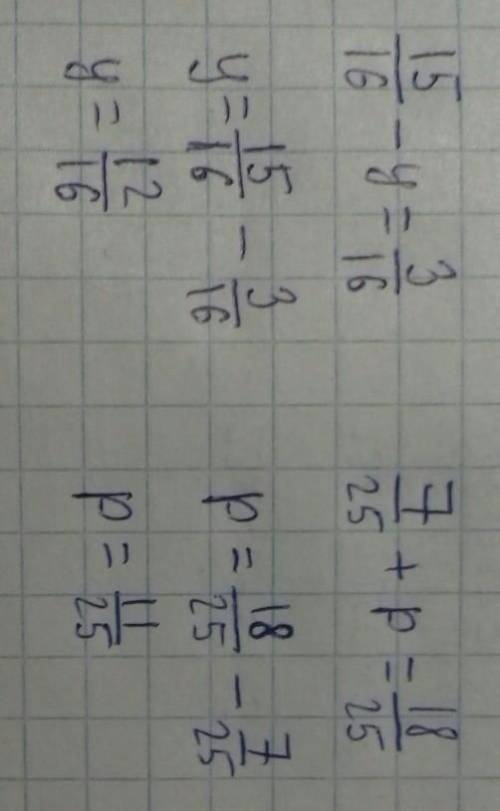 15/16 - y = 3/16
y = 15/16 - 3/16
y = 12/16
7/25 + p = 18/25
p = 18/25 - 7/25
p = 11/25